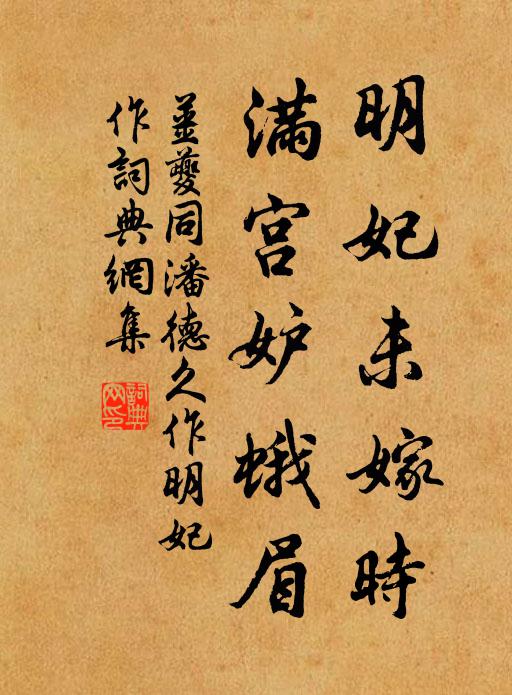 明妃未嫁時
滿宮妒蛾眉
姜夔同潘德久作明妃
作詞典網集
詞典網印